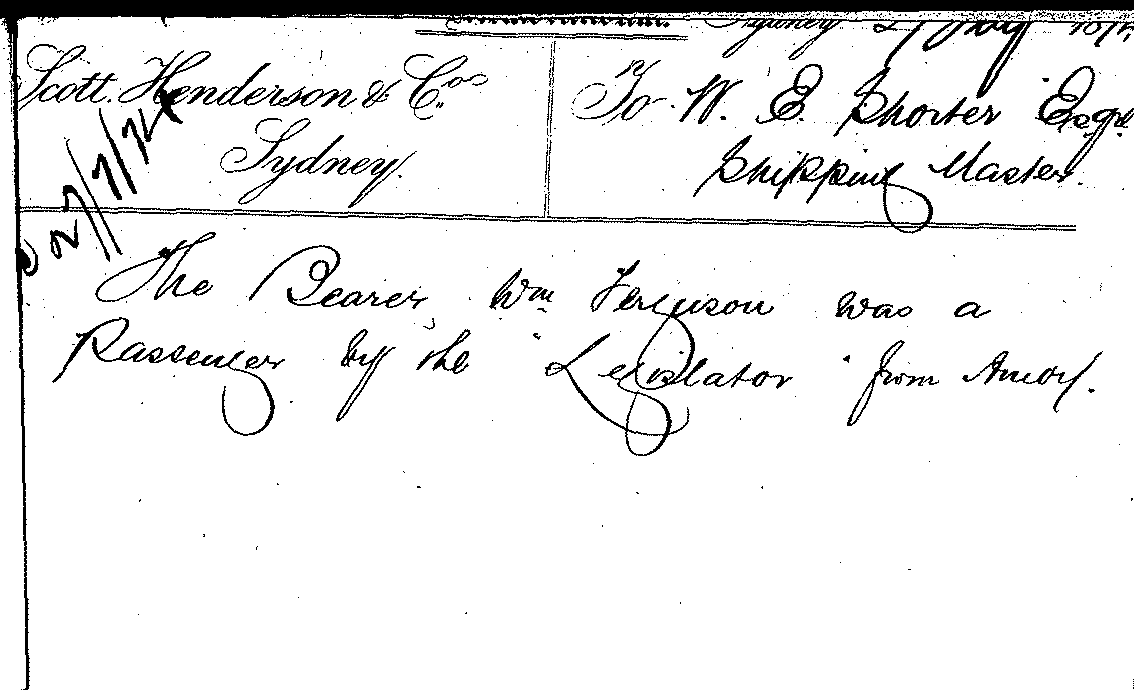 Sydney 27 July 187
Scott. Henderson & Cos
Sydney.
27/7/74
To W. E. Shorter Esqre
Shipping Master.
The Bearer Wm Ferguson was a
Passenger by the "Legislator" from Amoy.